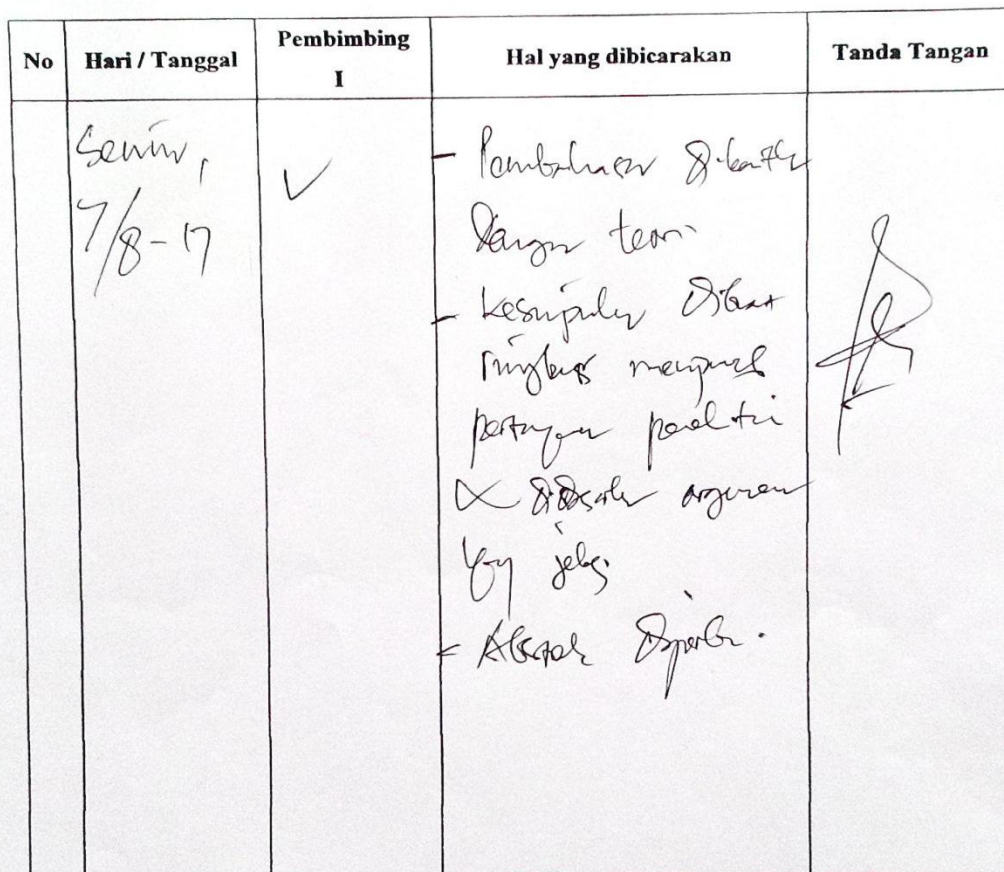 No Hari / Tanggal Pembimbing I Hal yang dibicarakan Tanda Tangan
Senin,
7/8-17
- Pembahasan
dengan teori
- Kesimpulan dibuat
ringkas menjawab
pertanyaan peneliti
argumen
yg jelas
- Abstrak diperbaiki.